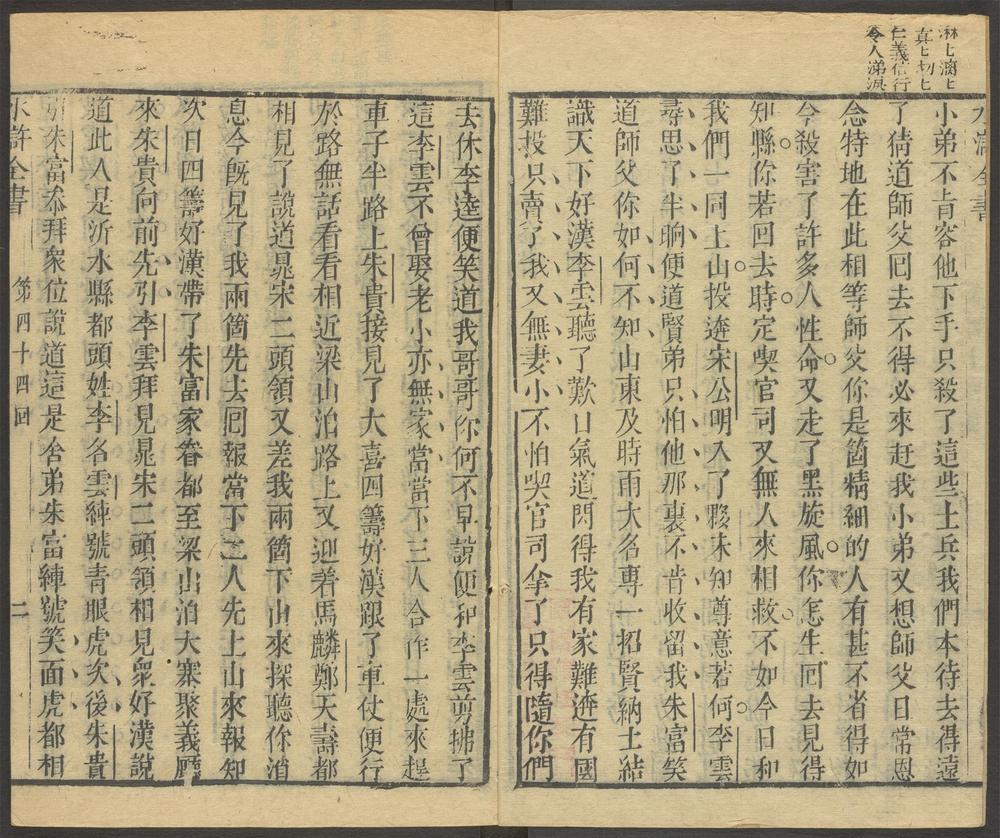 淋匕漓匕
真匕切匕
仁義信行
令人涕淚
水滸全書
小弟不肯容他下手只殺了這些土兵我們本待去得遠
了猜道師父回去不得必來赶我小弟又想師父日常恩
念特地在此相等師父你是箇精細的人有甚不省得如
今殺害了許多人性命又走了黑旋風你怎生回去見得
知縣你若回去時定喫官司又無人來相救不如今日和
我們一同上山投逩宋公明入了夥未知尊意若何李雲
尋思了半晌便道賢弟只怕他那裏不肯收留我朱富笑
道師父你如何不知山東及時雨大名專一招賢納士結
識天下好漢李雲聽了歎口氣道閃得我有家難逩有國
難投只賣了我又無妻小不怕喫官司拿了只得隨你們
去休李逵便笑道我哥哥你何不早說便和李雲剪拂了
這李雲不曾娶老小亦無家當當下三人合作一處來趕
車子半路上朱貴接見了大喜四籌好漢跟了車仗便行
於路無話看看相近梁山泊路上又迎着馬麟鄭天壽都
相見了說道晁宋二頭領又差我兩箇下山來探聽你消
息今既見了我兩箇先去回報當下二人先上山來報知
次日四籌好漢帶了朱富家眷都至梁山泊大寨聚義廳
來朱貴向前先引李雲拜見晁宋二頭領相見衆好漢說
道此人是沂水縣都頭姓李名雲綽號青眼虎次後朱貴
引朱富叅拜衆位說道這是舍弟朱富綽號笑面虎都相
水滸全書 第四十四回 二